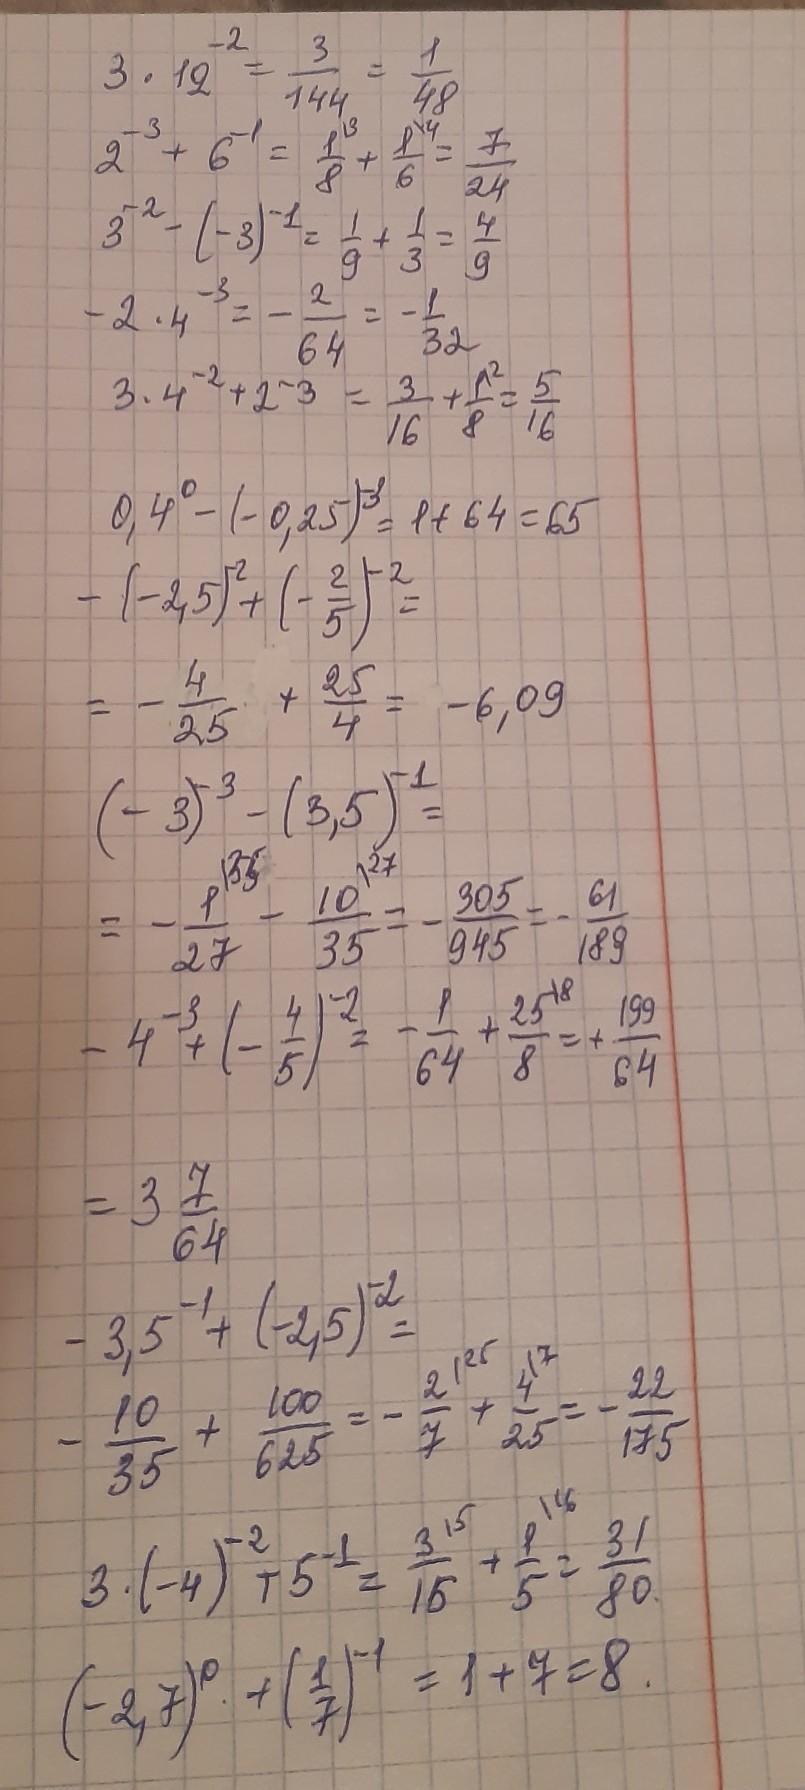 3 · 12^-2 = 3/144 = 1/48
2^-3 + 6^-1 = 1\3/8 + 1\4/6 = 7/24
3^-2 - (-3)^-1 = 1/9 + 1/3 = 4/9
-2 · 4^-3 = - 2/64 = - 1/32
3 · 4^-2 + 2^-3 = 3/16 + 1\2/8 = 5/16
0,4^0 - (-0,25)^-3 = 1 + 64 = 65
- (-2,5)^-2 + (- 2/5)^-2 =
= - 4/25 + 25/4 = -6,09
(-3)^-3 - (3,5)^-1 =
= - 1\35/27 - 10\27/35 = - 305/945 = - 61/189
- 4^-3 + (- 4/5)^-2 = - 1/64 + 25\8/8 = + 199/64
= 3 7/64
- 3,5^-1 + (-2,5)^-2 =
- 10/35 + 100/625 = - 2\25/7 + 4\7/25 = - 22/175
3 · (-4)^-2 + 5^-1 = 3\5/16 + 1\16/5 = 31/80.
(-2,7)^0 + (1/7)^-1 = 1 + 7 = 8.